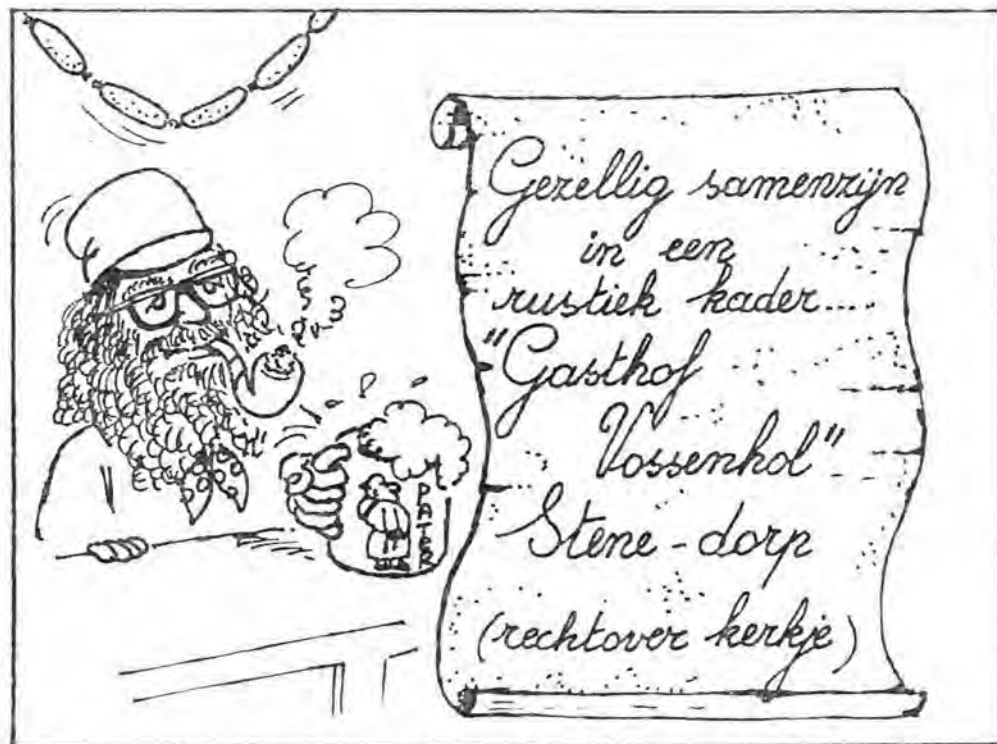 Gezellig samenzijn
in een
rustiek kader....
"Gasthof
Vossenhol"
Stene-dorp
(rechtover kerkje)
PATER